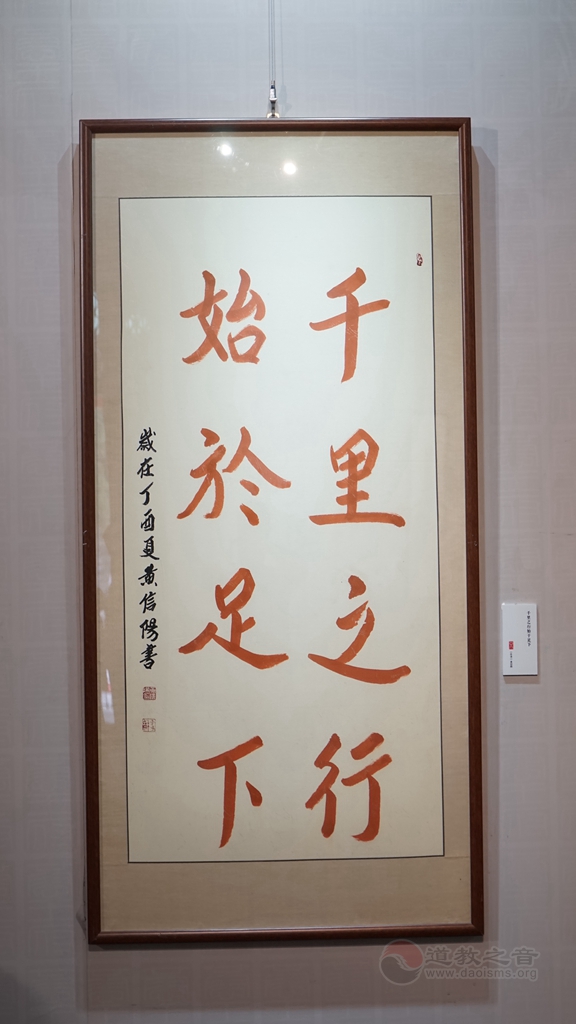 千里之行
始於足下
歲在丁酉夏黄信陽書
道教之音
www.daoisms.org